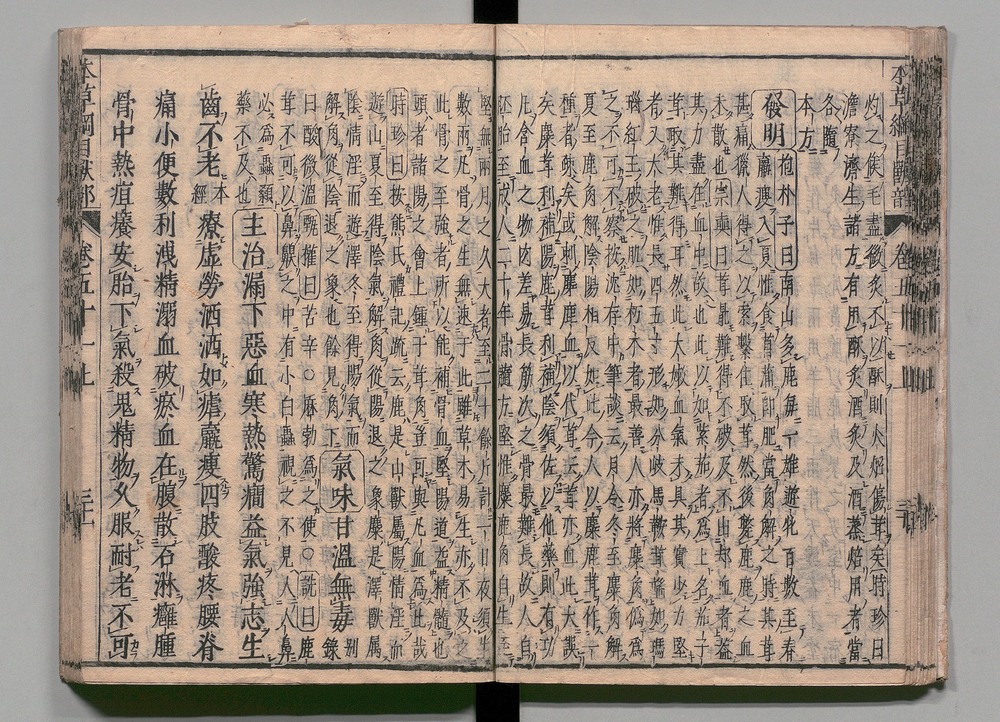 灼之候毛盡後炙不以酥則火焰傷茸矣時珍曰
澹寮濟生諸方有用酥炙酒炙及酒蒸焙用者當
各隨
本方
發明抱朴子曰南山多鹿每一雄遊牝百數至春
羸瘦入夏惟食菖蒲即肥當角解之時其茸
甚痛獵人得之以索繫住取茸然後斃鹿鹿之血
未散也宗奭曰茸最難得不破及不出却血者蓋
其力盡在血中故也此以如紫茄者為上名茄子
茸取其難得耳然此太嫩血氣未具其實少力堅
者又太老惟長四五寸形如分岐馬鞍茸端如瑪
瑙紅玉破之肌如朽木者最善人亦將麋角偽為
之不可不察按沈存中筆談云月令冬至麋角解
夏至鹿角解陰陽相反如此今人以麋鹿茸作一
種者疎矣或刺麋鹿血以代茸云茸亦血此大誤
矣麋茸利補陽鹿茸利補陰須佐以他藥則有功
凡含血之物肉差易長筋次之骨最難長故人自
胚胎至成人二十年骨髓方堅惟麋鹿角自生至
堅無兩月之久大者至二十餘斤計一日夜須生
數兩凡骨之生無速于此雖草木易生亦不及之
此骨之至強者所以能補骨血堅陽道益精髓也
頭者諸陽之會上鍾于茸角豈可與凡血為比哉
時珍曰按熊氏禮記疏云鹿是山獸屬陽情淫而
遊山夏至得陰氣解角從陽退之象麋是澤獸屬
陰情淫而遊澤冬至得陽氣而
解角從陰退之象也餘見角下
氣味甘溫無毒別錄
曰酸微溫甄權曰苦辛○麻勃為之使○詵曰鹿
茸不可以鼻齅之中有小白蟲視之不見入人鼻
必為蟲顙
藥不及也
主治漏下惡血寒熱驚癇益氣強志生
齒不老本經療虛勞洒洒如瘧羸瘦四肢酸疼腰脊
痛小便數利洩精溺血破瘀血在腹散石淋癰腫
骨中熱疽癢安胎下氣殺鬼精物久服耐老不可
本草綱目獸部
卷五十一上